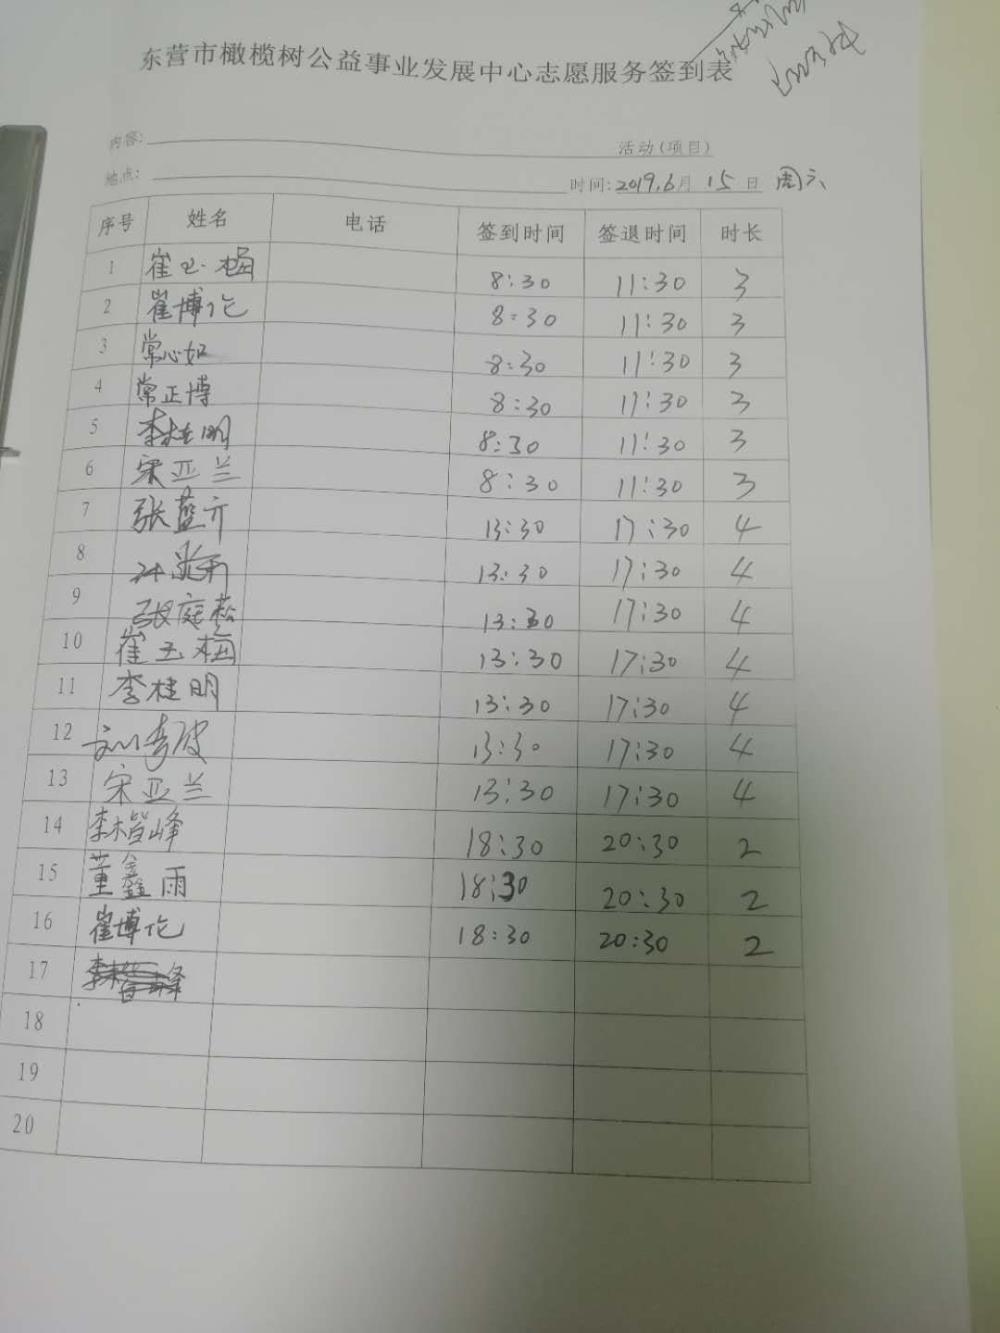 东营市橄榄树公益事业发展中心志愿服务签到表
内容: 活动(项目)
地点: 时间:2019.6月 15日 周六
序号 姓名 电话 签到时间 签退时间 时长
1 崔玉梅 8:30 11:30 3
2 崔博伦 8:30 11:30 3
3 常心如 8:30 11:30 3
4 常正博 8:30 11:30 3
5 李桂明 8:30 11:30 3
6 宋亚兰 8:30 11:30 3
7 张蓝亓 13:30 17:30 4
8 13:30 17:30 4
9 张庭松 13:30 17:30 4
10 崔玉梅 13:30 17:30 4
11 李桂明 13:30 17:30 4
12 13:30 17:30 4
13 宋亚兰 13:30 17:30 4
14 18:30 20:30 2
15 董鑫雨 18:30 20:30 2
16 崔博伦 18:30 20:30 2
17
18
19
20